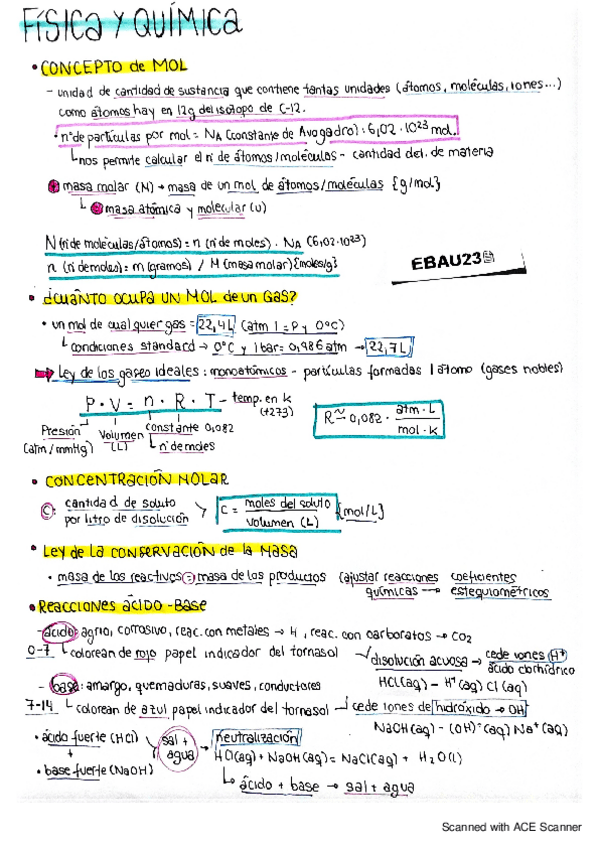 FÍSICA Y QUÍMICA
• CONCEPTO de MOL
- unidad de cantidad de sustancia que contiene tantas unidades (átomos, moléculas, iones...)
como átomos hay en 12g del isótopo de C-12.
• nº de partículas por mol = NA (constante de Avogadro) = 6,02 · 10²³ mol.
nos permite calcular el nº de átomos/moléculas - cantidad det. de materia
masa molar (M) → masa de un mol de átomos/moléculas {g/mol}
masa atómica y molecular (u)
N (nº de moléculas/átomos) = n (nº de moles) · NA (6,02·10²³)
n (nº de moles) = m (gramos) / M (masa molar) {moles/g}
EBAU23
• ¿CUÁNTO OCUPA UN MOL de un GAS?
• un mol de cualquier gas = 22,4 L (atm 1 = P y 0ºC)
condiciones standard → 0ºC y 1 bar = 0,986 atm → 22,7 L
Ley de los gases ideales: monoatómicos - partículas formadas 1 átomo (gases nobles)
P · V = n · R · T - temp. en K
(+273)
Presión (atm/mmHg)
Volumen (L)
constante 0,082
nº de moles
R ≃ 0,082 · atm · L / mol · K
• CONCENTRACIÓN MOLAR
C: cantidad de soluto por litro de disolución
C = moles del soluto / volumen (L) {mol/L}
• Ley de la CONSERVACIÓN de la MASA
• masa de los reactivos = masa de los productos (ajustar reacciones químicas → coeficientes estequiométricos
• REACCIONES ÁCIDO-BASE
- ácido: agrio, corrosivo, reac. con metales → H, reac. con carbonatos → CO₂
0-7 colorean de rojo papel indicador del tornasol
disolución acuosa → cede iones H⁺
ácido clorhídrico
HCl(aq) - H⁺(aq) Cl (aq)
- base: amargo, quemaduras, suaves, conductores
7-14 colorean de azul papel indicador del tornasol - cede iones de hidróxido → OH
NaOH(aq) - (OH)⁻(aq) Na⁺(aq)
• ácido fuerte (HCl)
+
• base fuerte (NaOH)
sal + agua
neutralización
HCl(aq) + NaOH(aq) = NaCl(aq) + H₂O(l)
ácido + base → sal + agua
Scanned with ACE Scanner